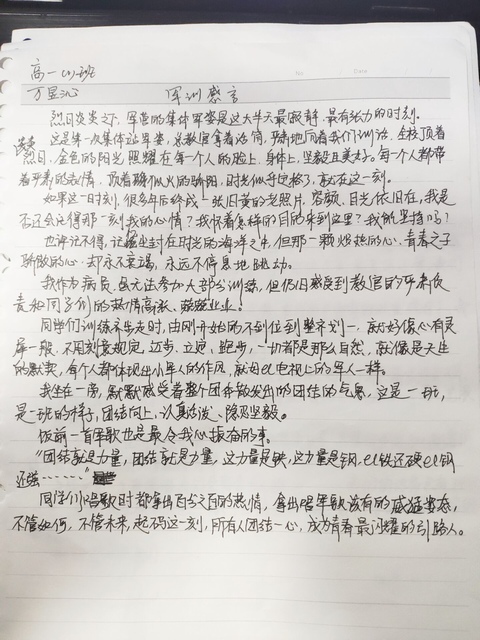 高一(1)班
万昱沁 军训感言
烈日炎炎之下,军营的集体军姿是这大半天最寂静、最有张力的时刻。
这是第一次集体站军姿,总教官拿着话筒,严肃地向着我们训话,全校顶着
炎炎
烈日,金色的阳光照耀在每一个人的脸上、身体上,坚毅且美好。每一个人都带
着严肃的表情,顶着确似火的骄阳,时光似乎定格了,就在这一刻。
如果这一时刻,很多年后终成一张旧黄的老照片,容颜、日光依旧在,我是
否还会记得那一刻我的心情?我怀着怎样的目的来到这里?我能坚持吗?
也许记不得,让尘封在时光的海洋之中,但那一颗炽热的心、青春之子
骄傲的心,却永不衰竭,永远不停息地跳动。
我作为病员,虽无法参加大部分训练,但仍旧感受到教官的严肃负
责和同学们的热情高涨、兢兢业业。
同学们训练齐步走时,由刚开始的不到位到整齐划一,就好像心有灵
犀一般,不用刻意规定,迈步、立定、跑步,一切都是那么自然,就像是天生
的默契,每个人都体现出小军人的作风,就与电视上的军人一样。
我坐在一旁,默默感受着整个团体散发出的团结的气息,这是一班,
是一班的样子,团结向上、认真奋发、隐忍坚毅。
饭前一首军歌也是最令我心振奋的事。
“团结就是力量,团结就是力量,这力量是铁,这力量是钢,比铁还硬比钢
还强……”
同学们唱歌时都拿出百分之百的热情,拿出唱军歌该有的威猛姿态,
不管如何,不管未来,起码这一刻,所有人团结一心,成为青春最闪耀的引路人。